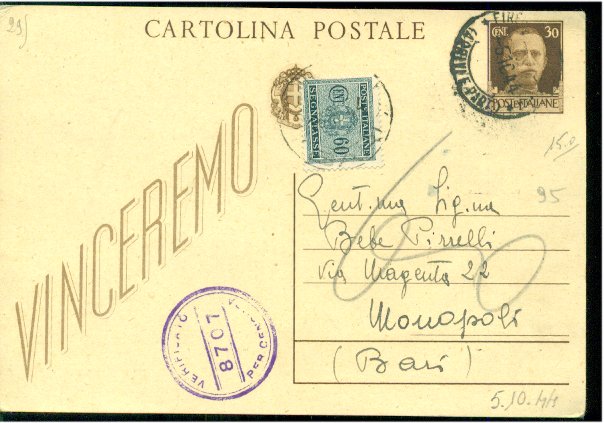 295
CARTOLINA POSTALE
CENT. 30
POSTE ITALIANE
POSTE ITALIANE
SEGNATASSE
60
VINCEREMO
15.0
95
60
Gent.ma Sig.na
Bebe Pirrelli
Via Magenta 22
Monopoli
(Bari)
VERIFICATO
8707
PER CENSURA
5.10.44